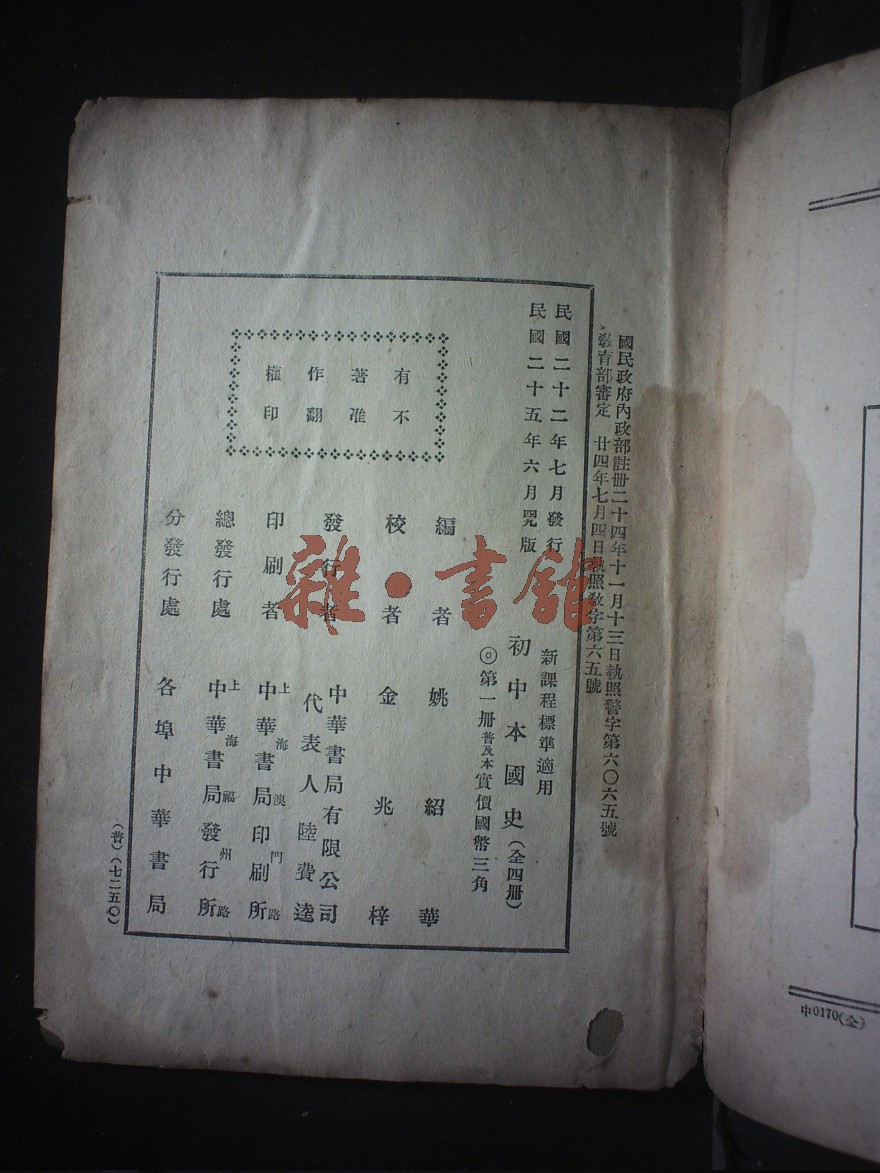 國民政府內政部註冊二十四年十一月十三日執照警字第六〇六五號
教育部審定 廿四年七月四日執照教字第六五號
民國二十二年七月發行
民國二十五年六月 版
有著作權
不准翻印
新課程標準適用
初中本國史(全四冊)
◎第一冊普及本實價國幣三角
編者 姚紹華
校者 金兆梓
發行者 中華書局有限公司
代表人 陸費逵
印刷者 上海澳門路
中華書局印刷所
總發行處 上海福州路
中華書局發行所
分發行處 各埠中華書局
(普)(七二五〇)
中0170(全)
雜·書館